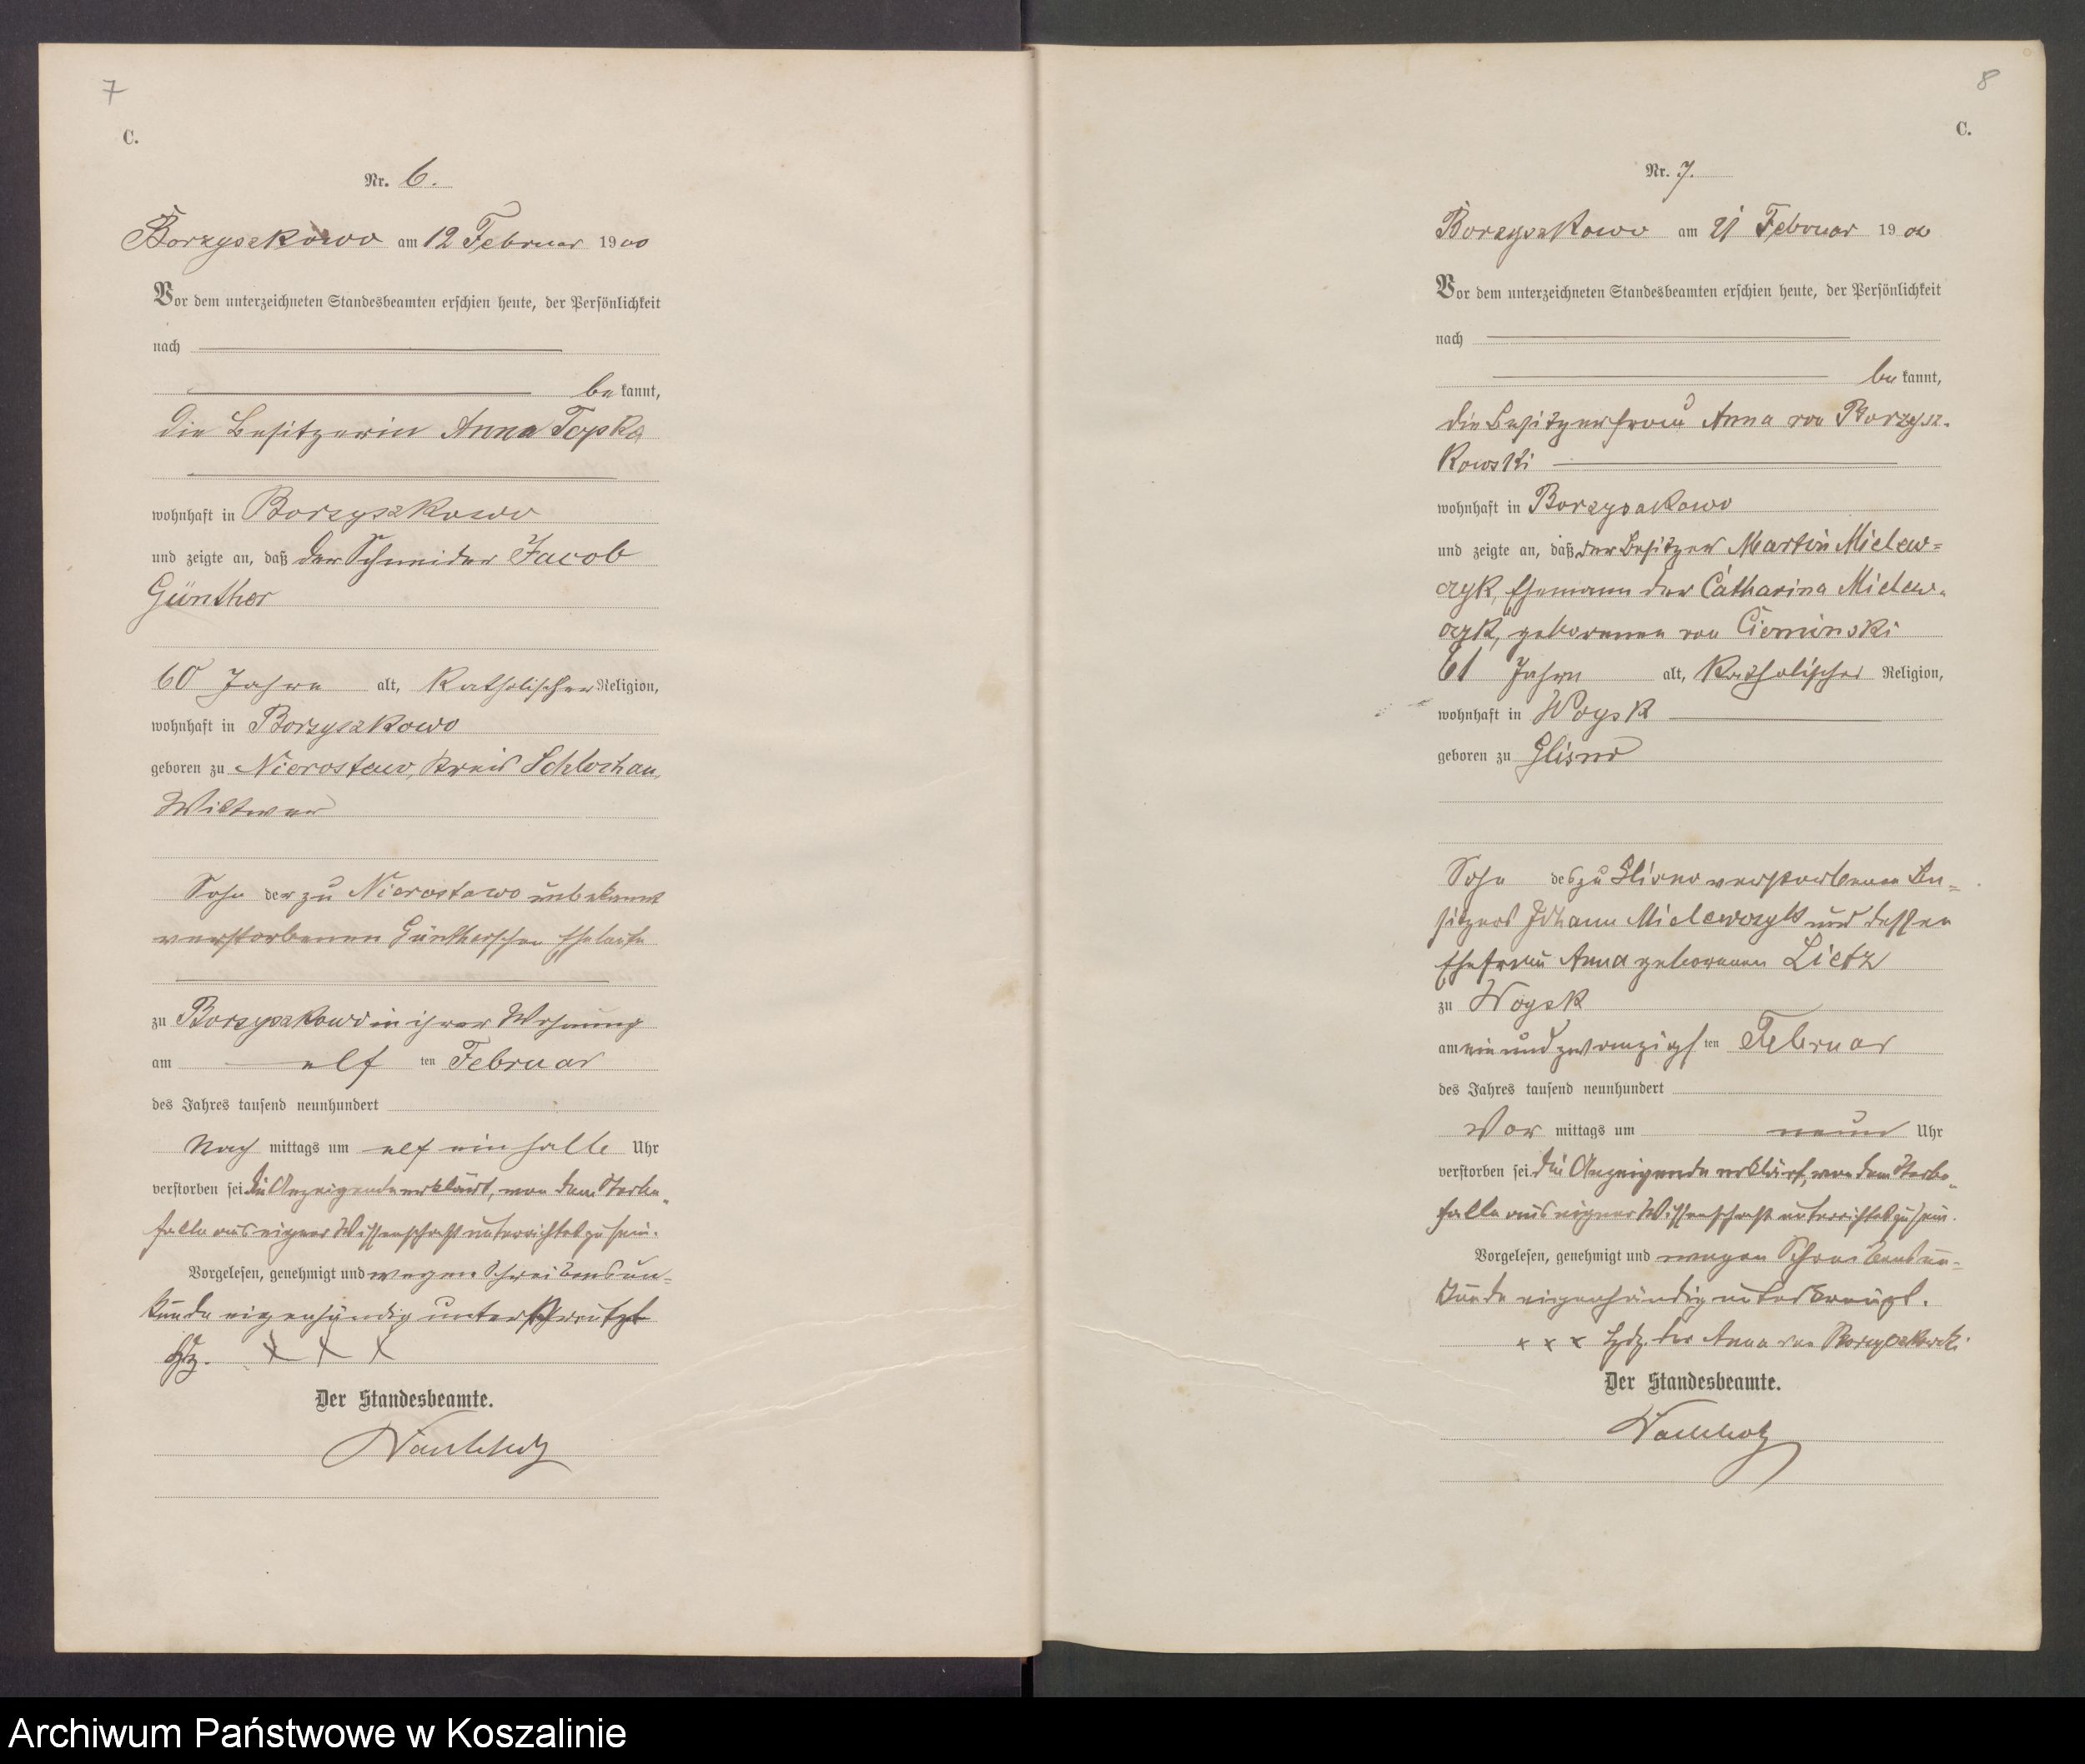 7
C.
Nr. 6.
Borzyszkowo am 12 Februar 1900
Vor dem unterzeichneten Standesbeamten erschien heute, der Persönlichkeit
nach
bekannt,
die Besitzerin Anna Topka
wohnhaft in Borzyszkowo
und zeigte an, daß der Schneider Jacob
Günther
60 Jahre alt, katholischer Religion,
wohnhaft in Borzyszkowo
geboren zu Nierostaw, Kreis Schlochau,
Wittwer
Sohn der zu Nierostawo unbekannt
verstorbenen Güntherschen Eheleute
zu Borzyszkowo in ihrer Wohnung
am elf ten Februar
des Jahres tausend neunhundert
Nach mittags um elf ein halb Uhr
verstorben sei. Die Anzeigende erklärt, von dem Sterbe„
falle aus eigner Wissenschaft unterrichtet zu sein.
Vorgelesen, genehmigt und wegen Schreibensun=
kunde eigenhändig unterkreutzt
Hdz. X X X
Der Standesbeamte.
8
C.
Nr. 7.
Borzyszkowo am 21 Februar 1900
Vor dem unterzeichneten Standesbeamten erschien heute, der Persönlichkeit
nach
bekannt,
die Besitzerfrau Anna von Borzysz-
kowski
wohnhaft in Borzyszkowo
und zeigte an, daß der Besitzer Martin Mielew=
czyk, Ehemann der Catharina Mielew-
czyk, geborenen von Cieminski
61 Jahre alt, katholischer Religion,
wohnhaft in Woysk
geboren zu Glisno
Sohn des zu Glisno verstorbenen Be=
sitzers Johann Mielewczyk und dessen
Ehefrau Anna geborenen Lietz
zu Woysk
am ein und zwanzigs ten Februar
des Jahres tausend neunhundert
Vor mittags um neun Uhr
verstorben sei. Die Anzeigende erklärt, von dem Sterbe„
falle aus eigner Wissenschaft unterrichtet zu sein.
Vorgelesen, genehmigt und wegen Schreibensun=
kunde eigenhändig unterkreuzt.
x x x Hdz. der Anna von Borzyszkowski
Der Standesbeamte.
Archiwum Państwowe w Koszalinie